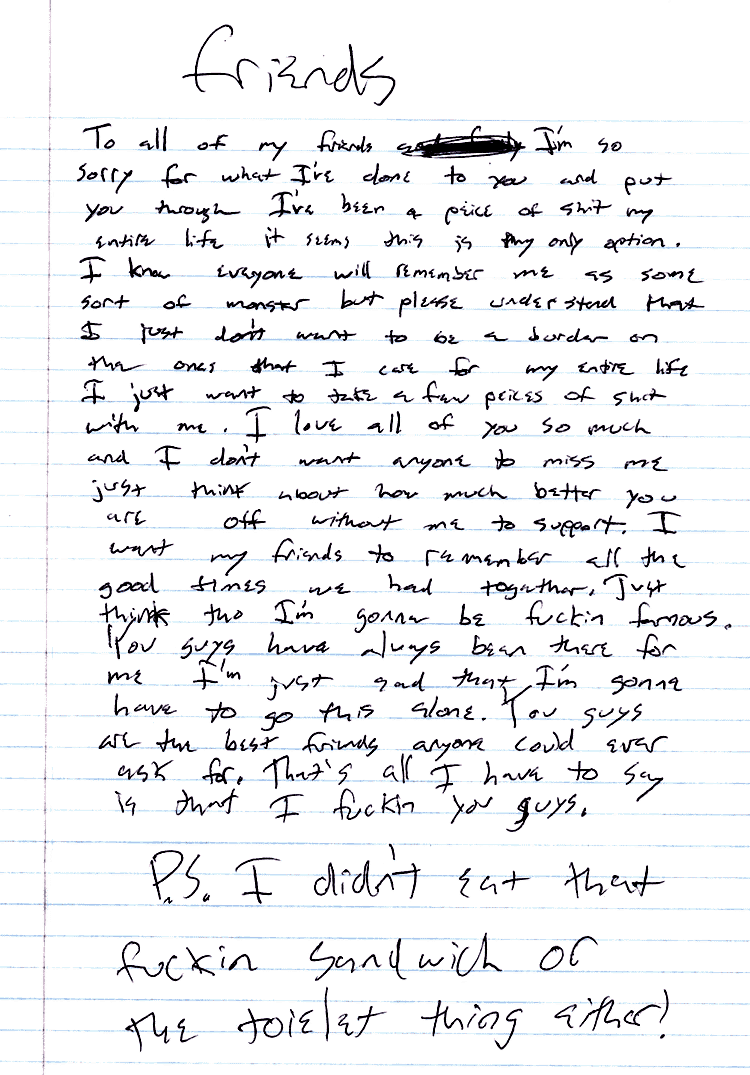 friends
To all of my friends I'm so
sorry for what I've done to you and put
you through I've been a peice of shit my
entire life it seems this is my only option.
I know everyone will remember me as some
sort of monster but please understand that
I just don't want to be a burden on
the ones that I care for my entire life
I just want to take a few peices of shit
with me. I love all of you so much
and I don't want anyone to miss me
just think about how much better you
are off without me to support. I
want my friends to remember all the
good times we had together. Just
think tho I'm gonna be fuckin famous.
You guys have always been there for
me I'm just sad that I'm gonna
have to go this alone. You guys
are the best friends anyone could ever
ask for. That's all I have to say
is that I fuckin you guys.
P.S. I didn't eat that
fuckin sandwich or
the toielet thing either!